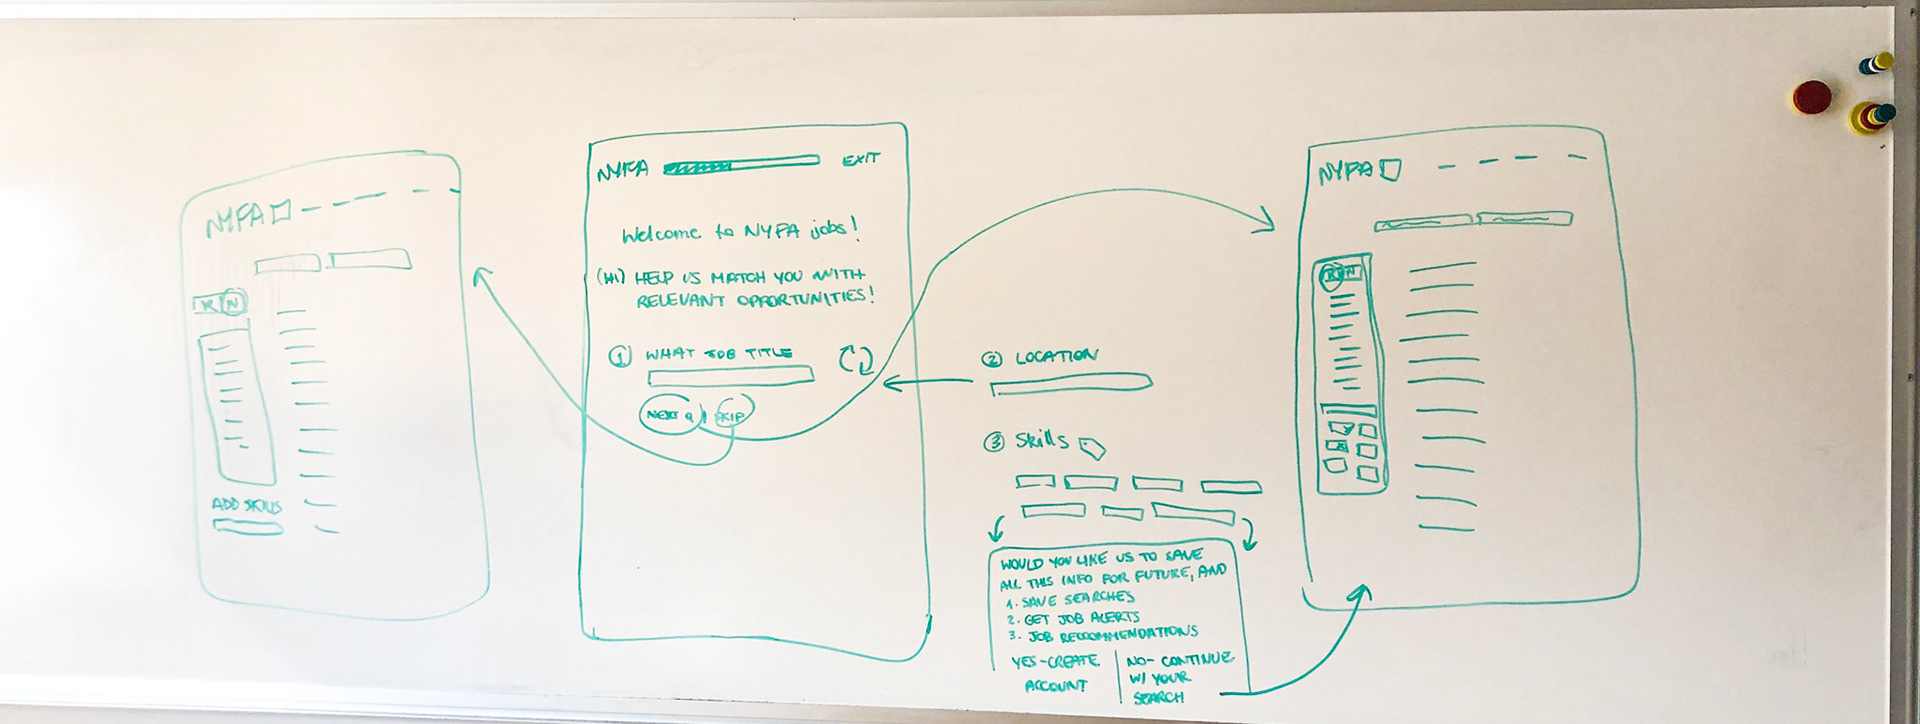 NYFA
R N
ADD SKILLS
NYFA EXIT
Welcome to NYFA jobs!
(HI) HELP US MATCH YOU WITH
RELEVANT OPPORTUNITIES!
1 WHAT JOB TITLE
NEXT | SKIP
2 LOCATION
3 Skills
WOULD YOU LIKE US TO SAVE
ALL THIS INFO FOR FUTURE, AND
1. SAVE SEARCHES
2. GET JOB ALERTS
3. JOB RECOMMENDATIONS
YES-CREATE
ACCOUNT
NO- CONTINUE
W/ YOUR
SEARCH
NYFA
R N